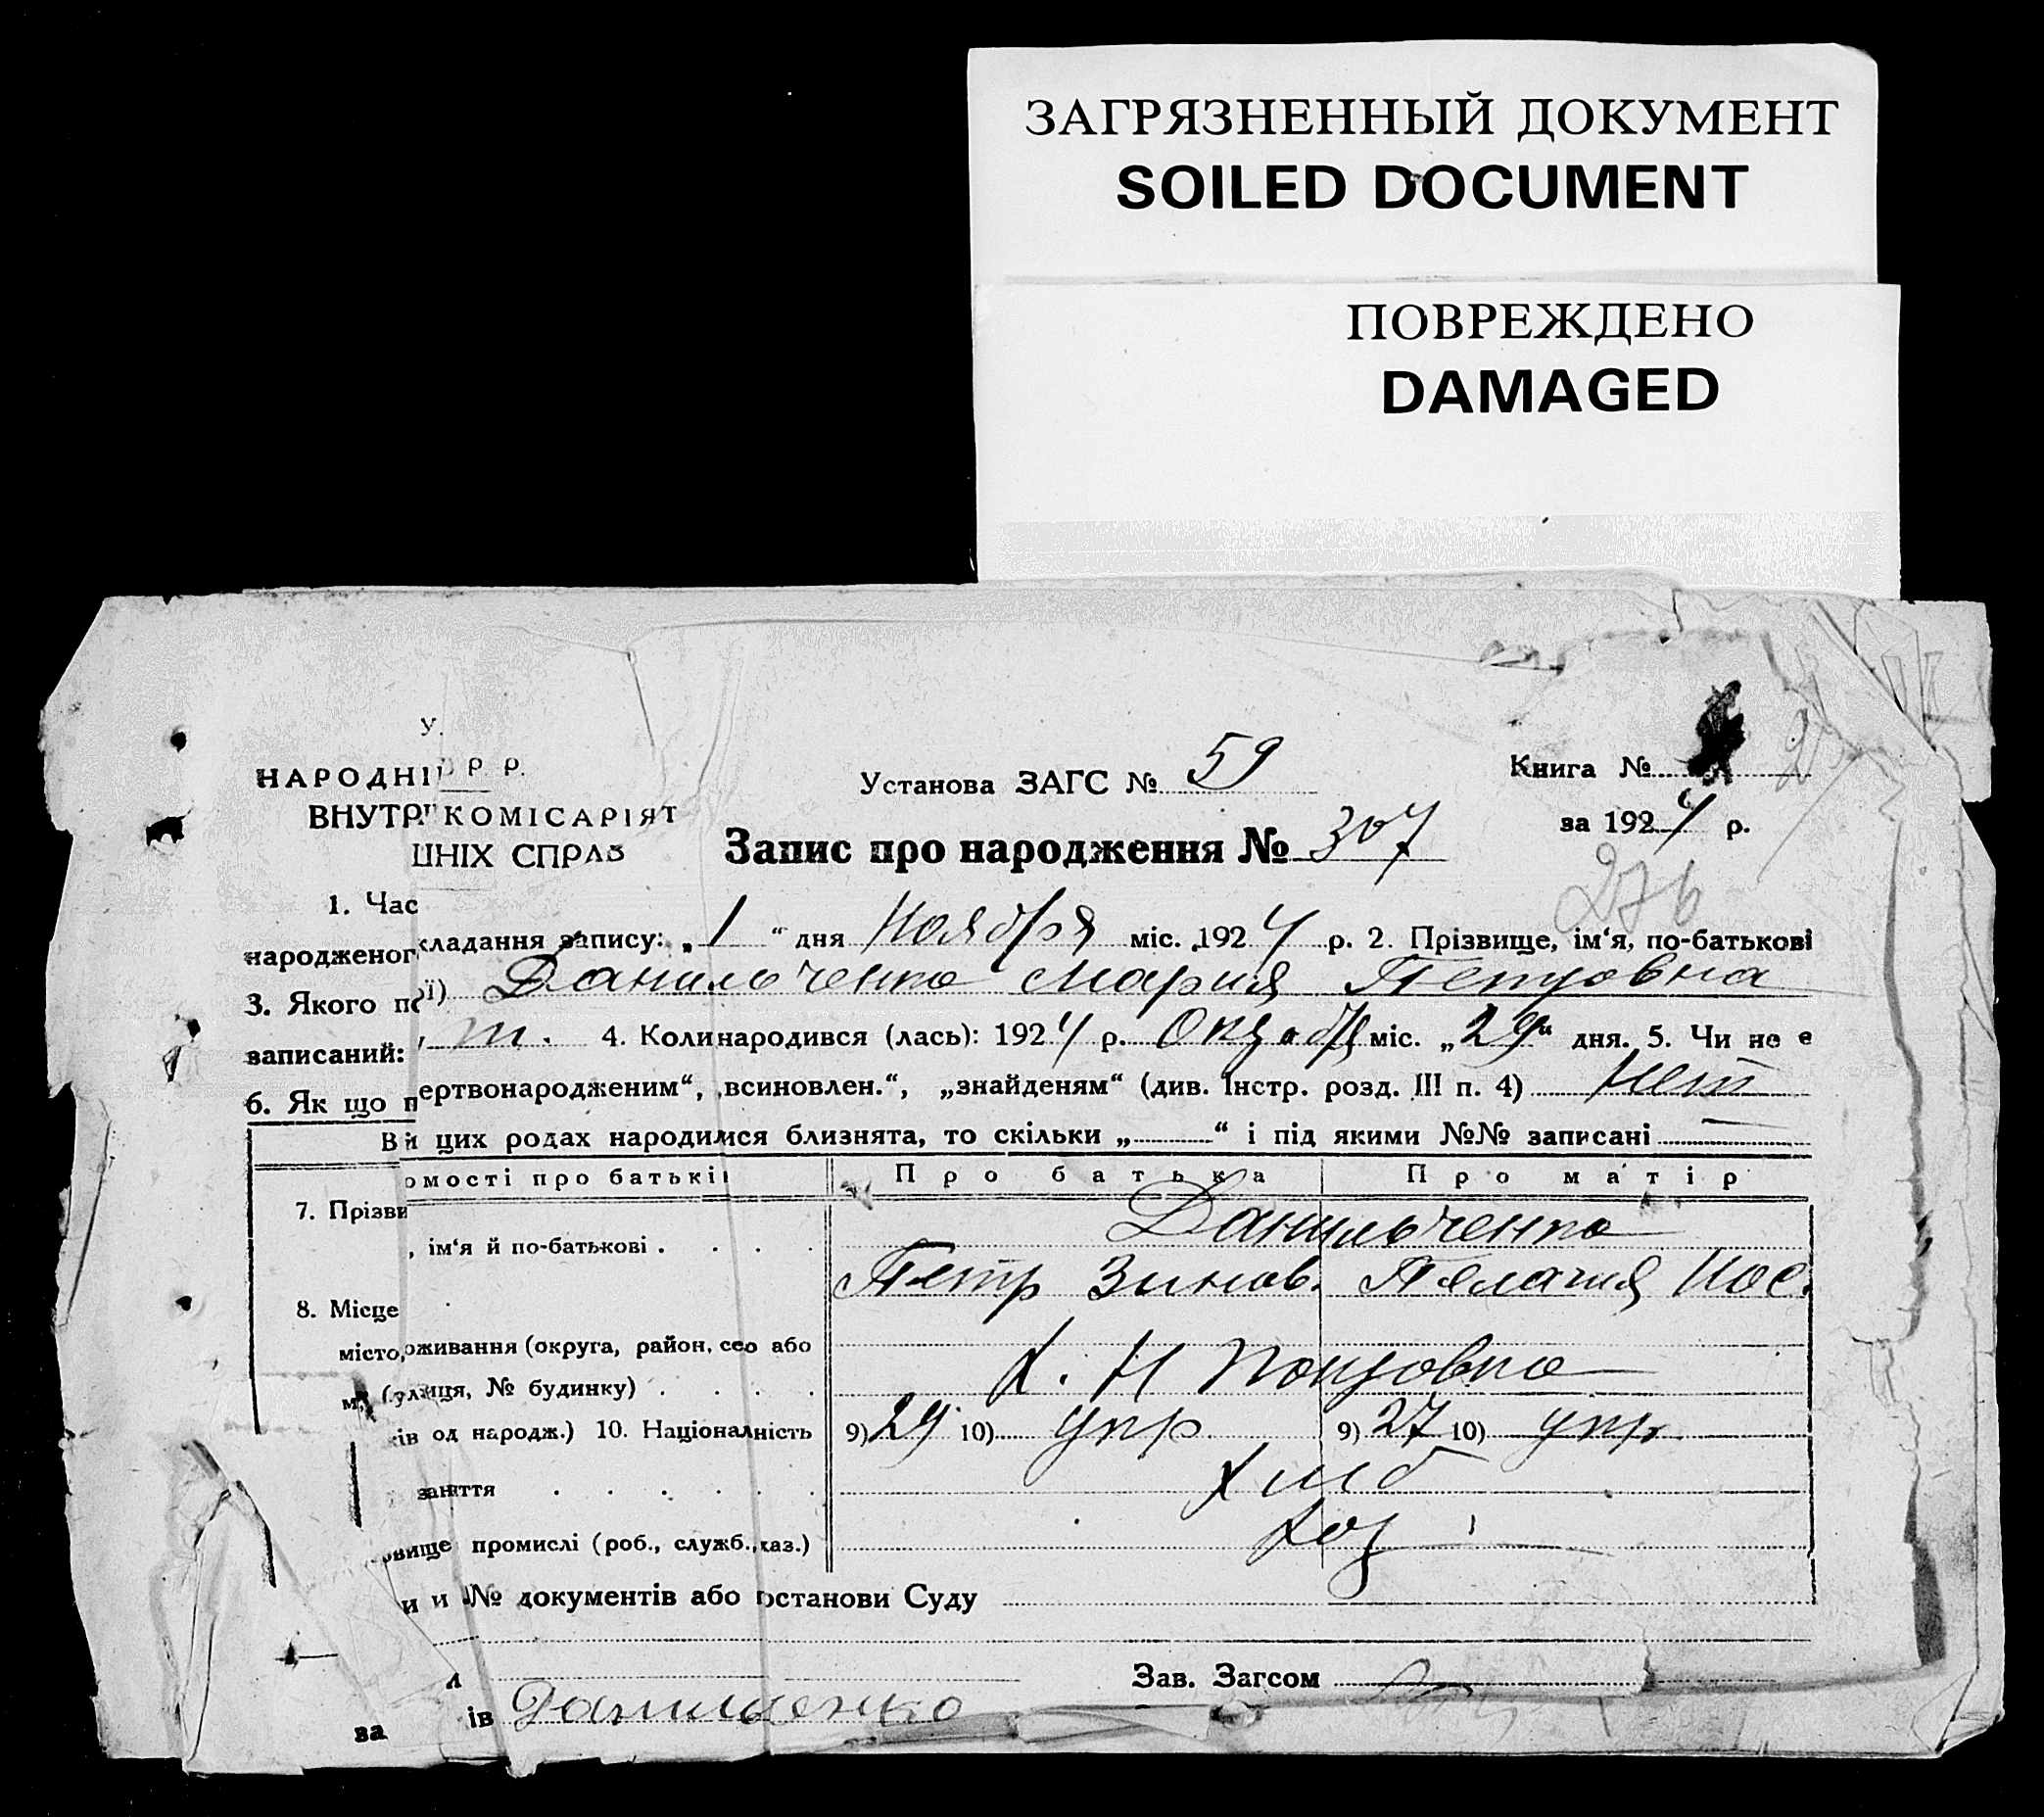 ЗАГРЯЗНЕННЫЙ ДОКУМЕНТ
SOILED DOCUMENT
ПОВРЕЖДЕНО
DAMAGED
У.
НАРОДНІ Р. Р.
ВНУТР КОМІСАРІЯТ
ШНІХ СПРАВ
Установа ЗАГС № 59
Книга №
за 1924 р.
Запис про народження № 307
276
1. Час кладання запису: „1“ дня Ноября міс. 1924 р. 2. Прізвище, ім‘я, по-батькові
народженог ої) Данильченко Мария Петровна
3. Якого по 4. Коли народився (лась): 1924 р. Октября міс. „29“ дня. 5. Чи не є
записаний: ертвонародженим“, всиновлен.“, „знайденям“ (див. Інстр. розд. III п. 4) Нет
6. Як що п и цих родах народимся близнята, то скільки „ “ і під якими №№ записані
Ві омості про батькі
Про батька
Про матір
7. Прізви , ім‘я й по-батькові
Данильченко
Петр Зинов. Пелагия
8. Місце
місто, оживання (округа, район, село або
м, (улиця, № будинку)
Х. Н Покровка
ків од народж.) 10. Національність
9) 29 10) укр 9) 27 10) укр
заняття
хлб
овище промислі (роб., служб., хаз.)
хоз
и и № документів або останови Суду
Зав. Загсом
за ів Данильченко